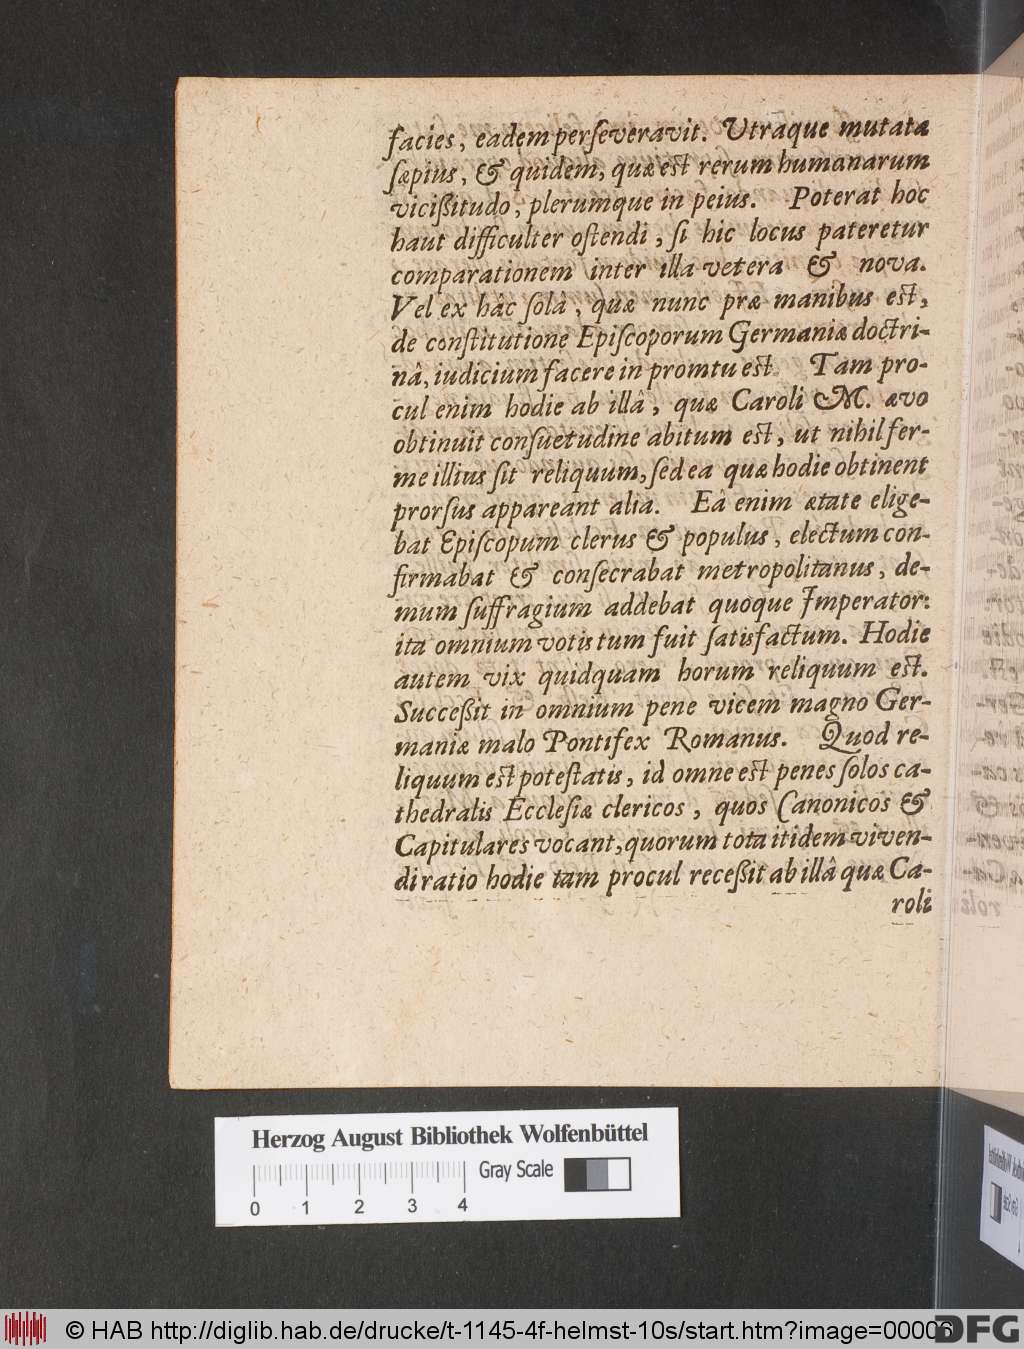 facies, eadem perſeveravit. Utraque mutata
ſæpius, & quidem, quæ est rerum humanarum
vicißitudo, plerumque in peius. Poterat hoc
haut difficulter oſtendi, ſi hic locus pateretur
comparationem inter illa vetera & nova.
Vel ex hâc ſolâ, quæ nunc præ manibus est,
de conſtitutione Epiſcoporum Germaniæ doctri-
nâ, iudicium facere in promtu est. Tam pro-
cul enim hodie ab illâ, quæ Caroli M. ævo
obtinuit conſuetudine abitum est, ut nihil fer-
me illius ſit reliquum, ſed ea quæ hodie obtinent
prorſus appareant alia. Eâ enim ætate elige-
bat Epiſcopum clerus & populus, electum con-
firmabat & conſecrabat metropolitanus, de-
mum ſuffragium addebat quoque Imperator:
ita omnium votis tum fuit ſatisfactum. Hodie
autem vix quidquam horum reliquum est.
Succeßit in omnium pene vicem magno Ger-
maniæ malo Pontifex Romanus. Quod re-
liquum est poteſtatis, id omne est penes ſolos ca-
thedralis Eccleſiæ clericos, quos Canonicos &
Capitulares vocant, quorum tota itidem viven-
di ratio hodie tam procul receßit ab illâ quæ Ca-
roli
Herzog August Bibliothek Wolfenbüttel
Gray Scale
0 1 2 3 4
© HAB http://diglib.hab.de/drucke/t-1145-4f-helmst-10s/start.htm?image=00006
DFG